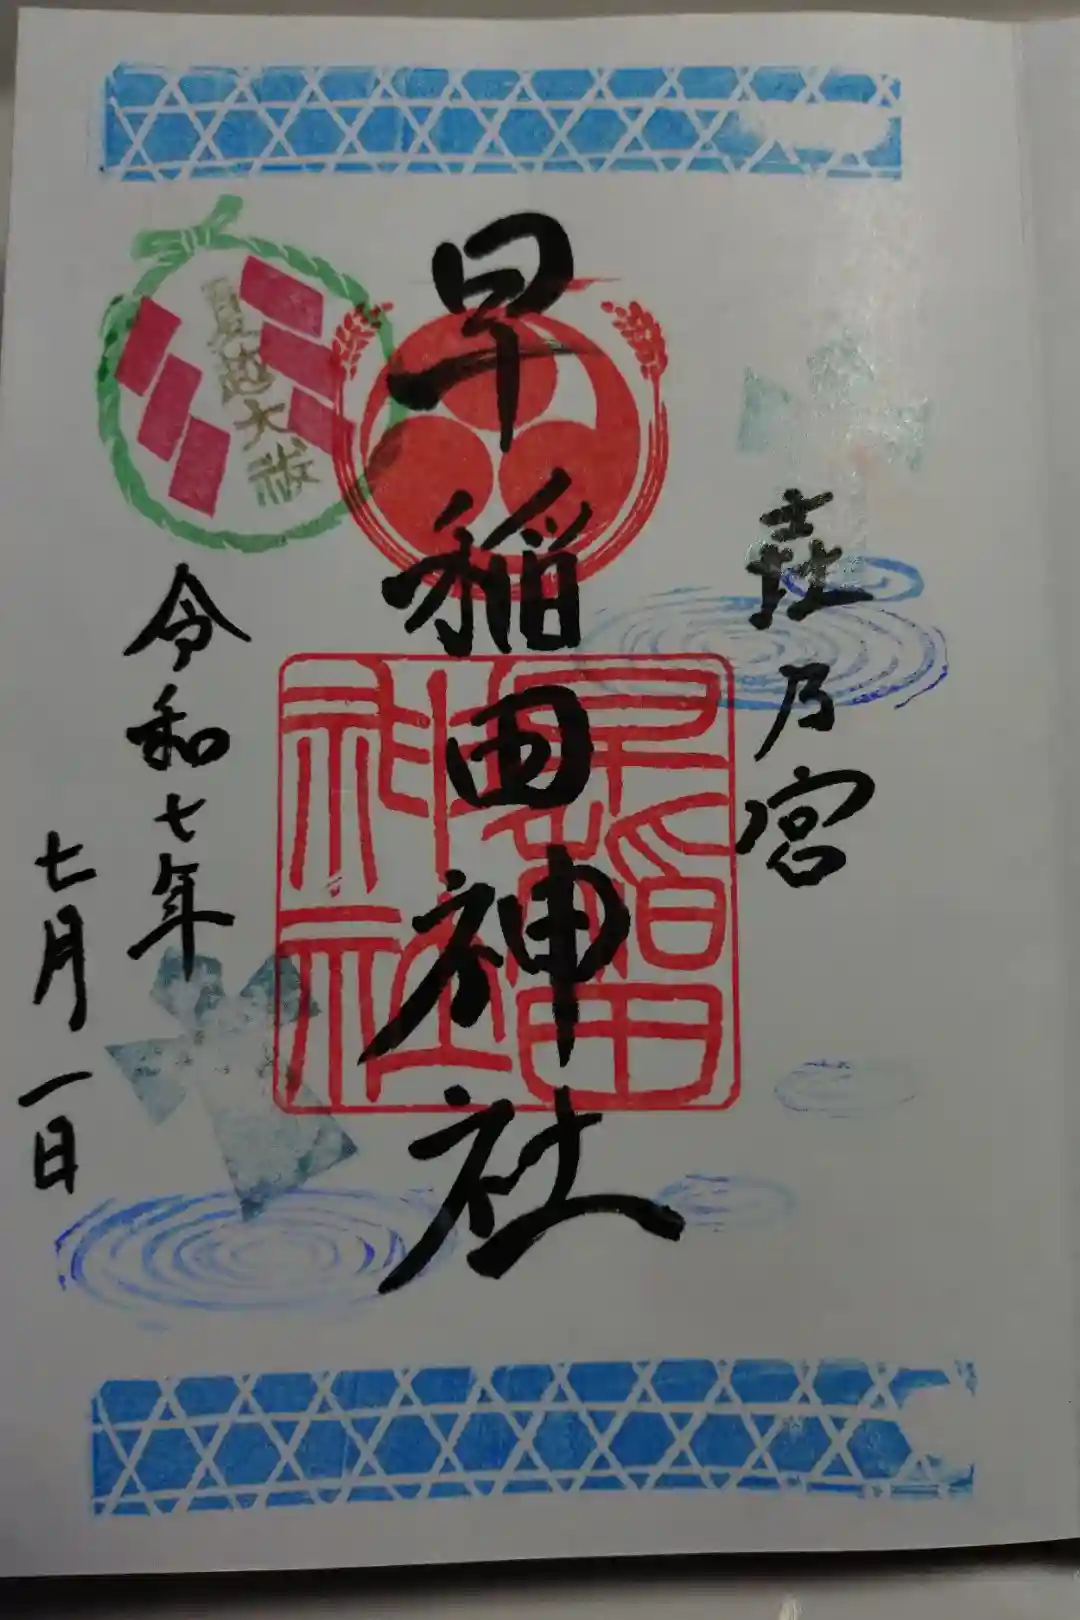 乃宮
早稲田神社
早稲田
神社
夏越大祓
令和七年
七月一日